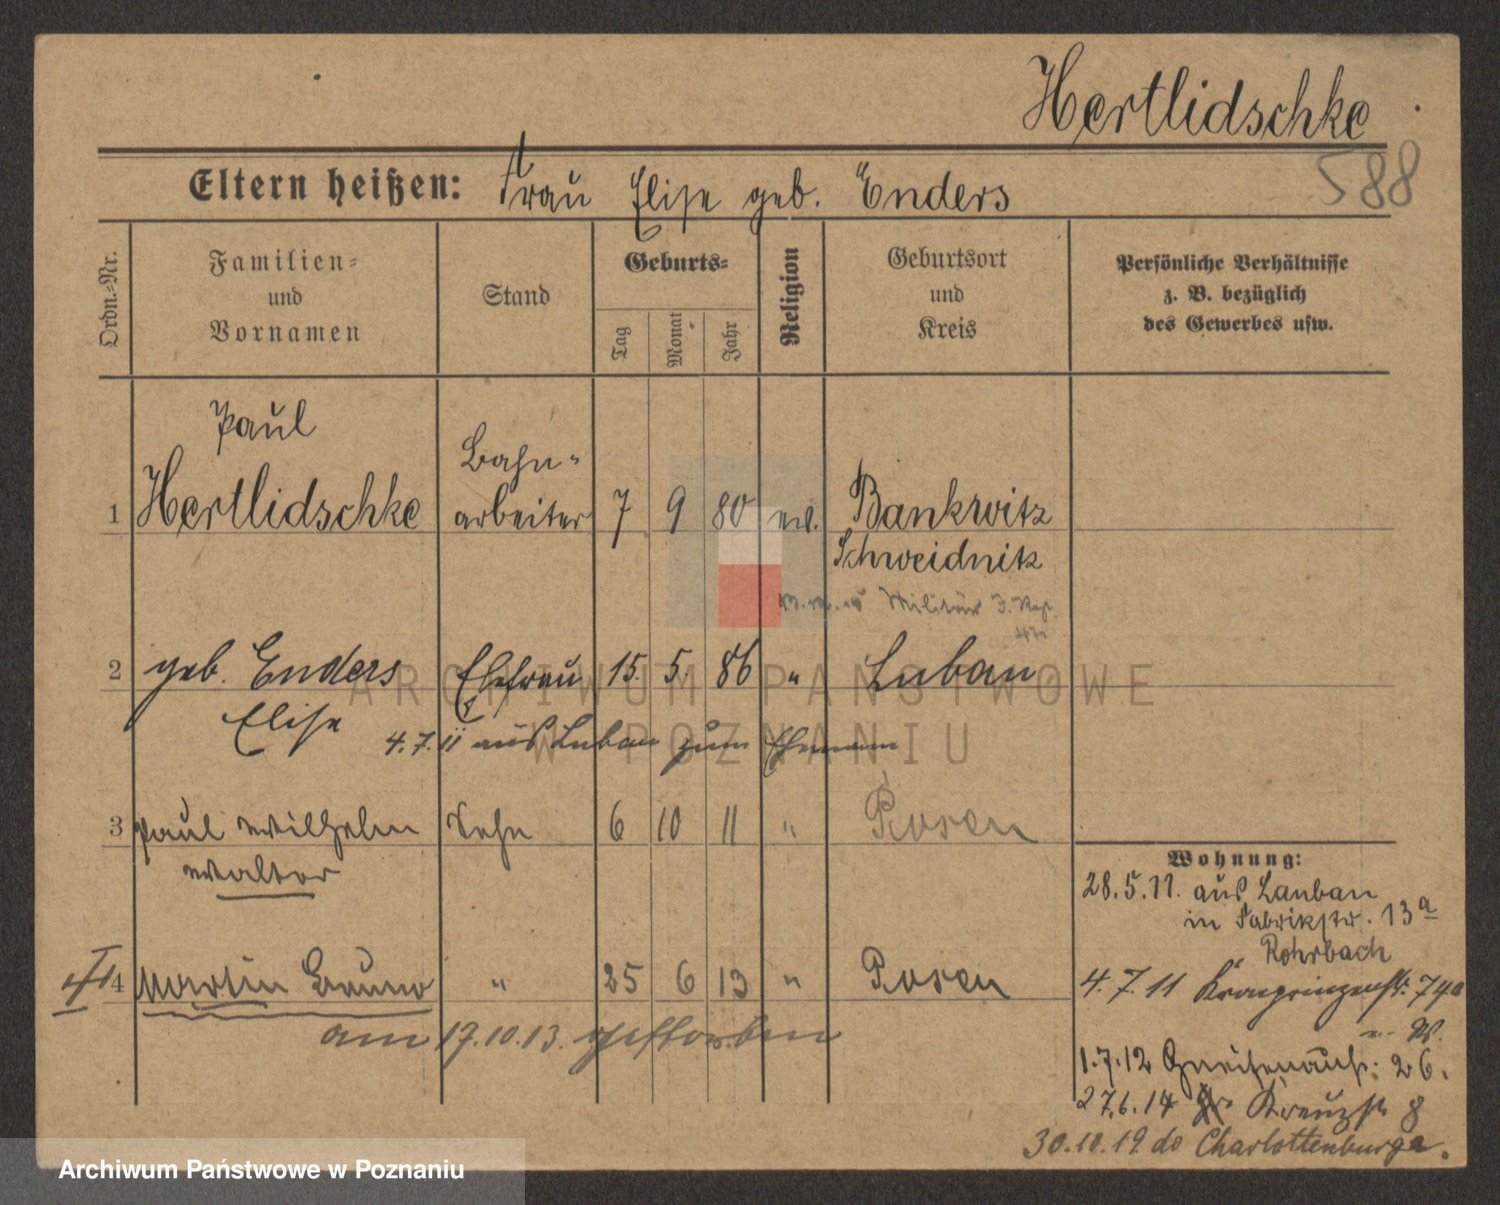 Hertlidschke
588
Eltern heißen: Frau Elise geb. Enders
Ordn.-Nr.
Familien-
und
Vornamen
Stand
Geburts-
Tag
Monat
Jahr
Religion
Geburtsort
und
Kreis
Persönliche Verhältnisse
z. B. bezüglich
des Gewerbes usw.
Paul
Bahn-
1 Hertlidschke arbeiter 7 9 80 ev. Bankwitz
Schweidnitz
Militär
2 geb. Enders Ehefrau 15. 5. 86 " Luban
Elise
4.7.11 aus Luban zum Ehemann
3 Paul Wilhelm Sohn 6 10 11 " Posen
Walter
4 Martin Bruno " 25 6 13 " Posen
am 17.10.13. gestorben
Wohnung:
28.5.11. aus Lauban
in Fabrikstr. 13a
Rohrbach
4.7.11 Kronprinzenstr. 74a
1.7.12 Gneisenaustr. 26.
27.6.14 Kreuzstr 8
30.10.19. do Charlottenburg
ARCHIWUM PAŃSTWOWE
W POZNANIU
Archiwum Państwowe w Poznaniu